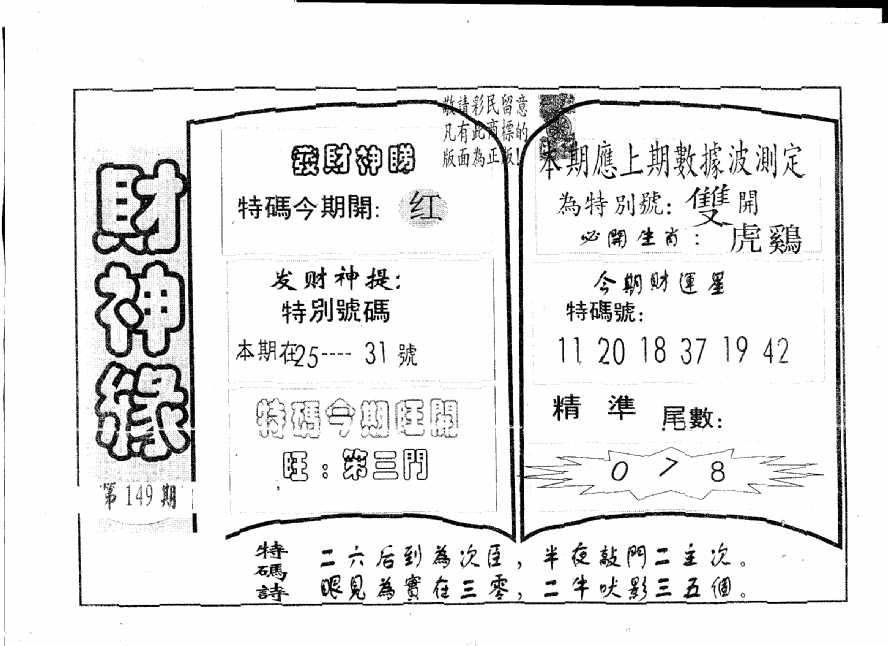 財神緣
第149期
敬請彩民留意
凡有此商標的
版面為正版!
發財神賜
特碼今期開: 红
发财神提:
特別號碼
本期在25---- 31 號
特碼今期旺開
旺:第三門
本期應上期數據波測定
為特別號: 雙開
必開生肖: 虎鷄
今期財運星
特碼號:
11 20 18 37 19 42
精準 尾數:
0 7 8
特碼詩
二六后到為次臣,半夜敲門二主次。
眼見為實在三零,二牛吠影三五個。